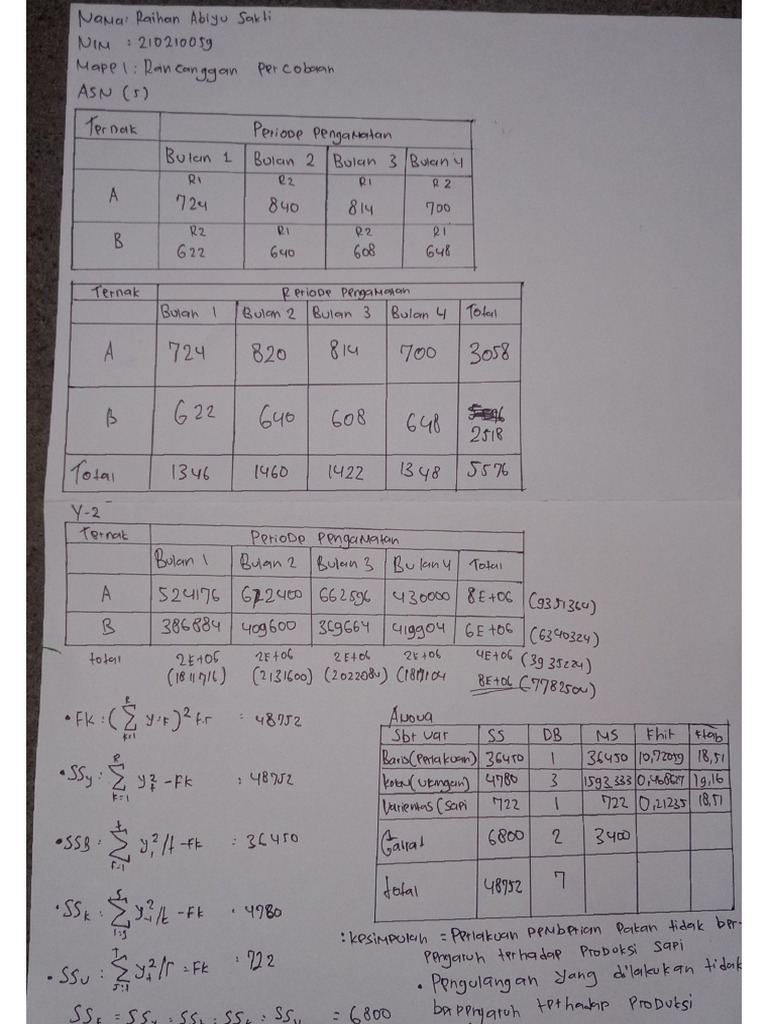 Nama: Raihan Abiyu Sakti
NIM : 210210059
Mapel : Rancanggan percobaan
ASN (5)
Ternak Periode Pengamatan
Bulan 1 Bulan 2 Bulan 3 Bulan 4
R1 R2 R1 R2
A 724 840 814 700
R2 R1 R2 R1
B 622 640 608 648
Ternak Periode Pengamatan
Bulan 1 Bulan 2 Bulan 3 Bulan 4 Total
A 724 820 814 700 3058
B 622 640 608 648 2518
Total 1346 1460 1422 1348 5576
Y-2
Ternak Periode Pengamatan
Bulan 1 Bulan 2 Bulan 3 Bulan 4 Total
A 524176 672400 662596 430000 8E+06 (9351364)
B 386884 409600 369664 419904 6E+06 (6340324)
total 2E+06 2E+06 2E+06 2E+06 4E+06 (3935224)
(1811716) (2131600) (2022084) 8E+06 (7782504)
• FK : : 48752
• SSy : - FK : 48952
• SSB : - FK : 36450
• SSk : - FK . 4780
• SSU : = FK : 722
= 6800
Anova
Sbr var SS DB MS Fhit Ftab
Baris (Perlakuan) 36450 1 36450 10,72059 18,51
4780 3 1593.333 19,16
Varientas (Sapi 722 1 722 0,21235 18,51
Galat 6800 2 3400
total 48952 7
: Kesimpulah = Perlakuan pemberian Pakan tidak ber-
pengaruh terhadap Produksi sapi
• Pengulangan yang dilakukan tidak
berpengaruh terhadap produksi